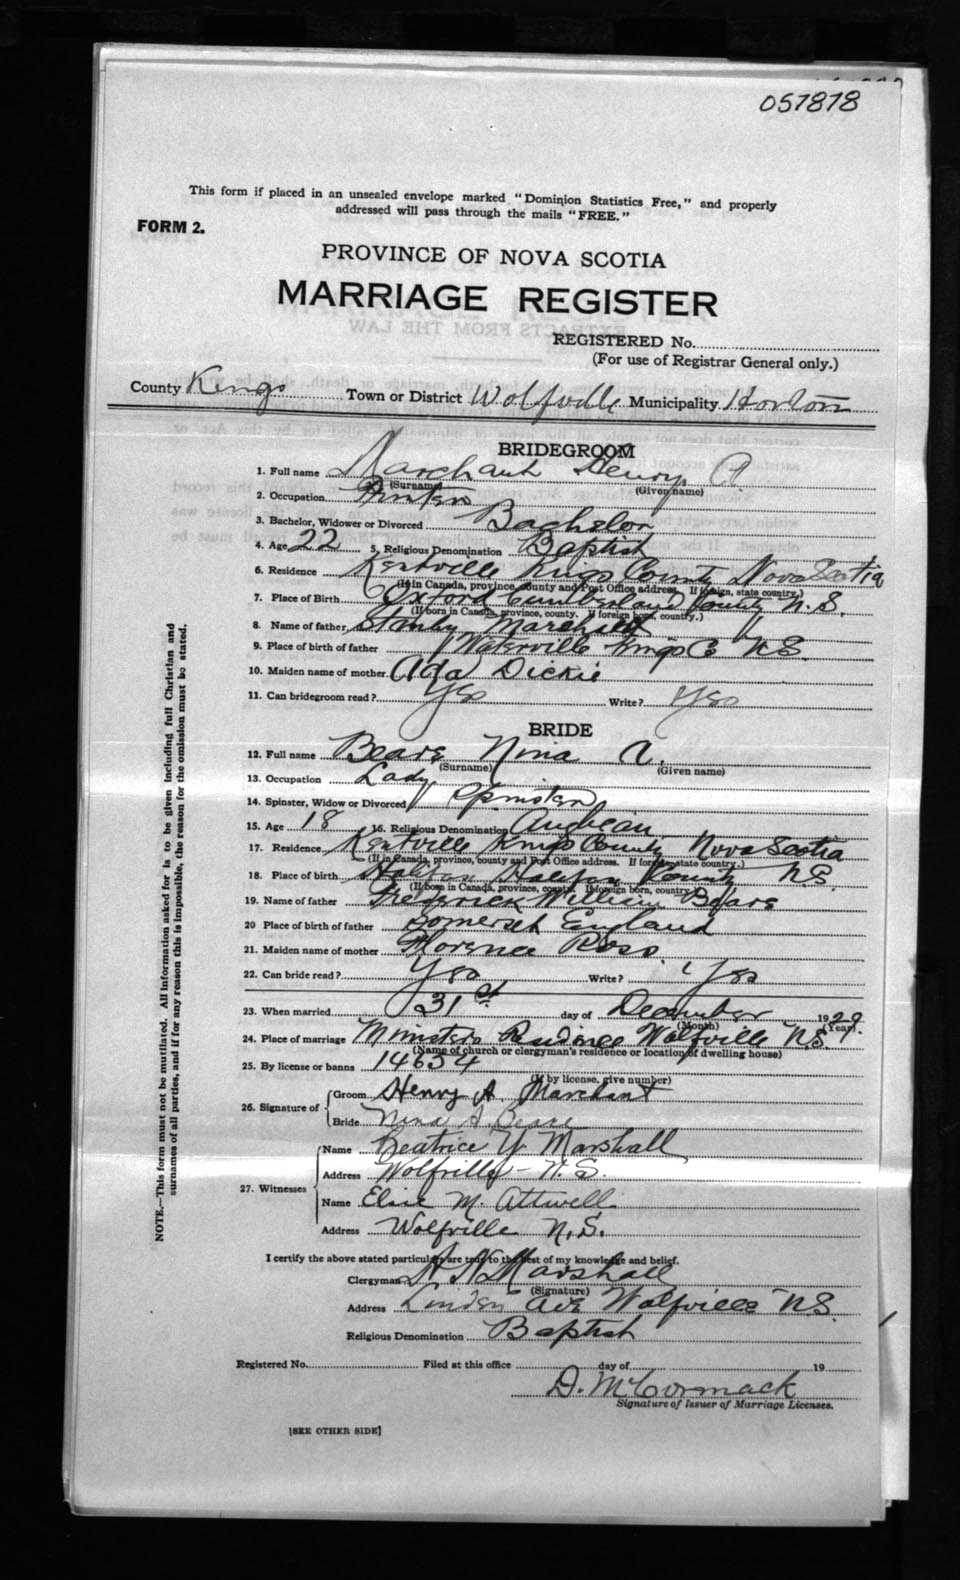 057878
This form if placed in an unsealed envelope marked "Dominion Statistics Free," and properly
addressed will pass through the mails "FREE."
FORM 2.
PROVINCE OF NOVA SCOTIA
MARRIAGE REGISTER
EXTRACTS FROM THE LAW
REGISTERED No.
(For use of Registrar General only.)
County Kings Town or District Wolfville Municipality Horton
BRIDEGROOM
1. Full name Marchant Henry A
(Surname) (Given name)
2. Occupation
3. Bachelor, Widower or Divorced Bachelor
4. Age 22 5. Religious Denomination Baptist
6. Residence Kentville Kings County Nova Scotia
(If in Canada, province, county and Post Office address. If foreign, state country.)
7. Place of Birth Oxford Cumberland County N.S.
(If born in Canada, province, county. If foreign born, country.)
8. Name of father Stanley Marchant
9. Place of birth of father Waterville Kings Co N.S.
10. Maiden name of mother Ada Dickie
11. Can bridegroom read? Yes Write? Yes
BRIDE
12. Full name Beare Nina A.
(Surname) (Given name)
13. Occupation Lady
14. Spinster, Widow or Divorced Spinster
15. Age 18 16. Religious Denomination Anglican
17. Residence Kentville Kings County Nova Scotia
(If in Canada, province, county and Post Office address. If foreign state country.)
18. Place of birth Halifax Halifax County N.S.
(If born in Canada, province, county. If foreign born, country.)
19. Name of father Frederick William Beare
20 Place of birth of father Somerset England
21. Maiden name of mother Florence Ross.
22. Can bride read? Yes Write? Yes
23. When married 31st day of December 1929.
(Month) (Year)
24. Place of marriage Ministers Residence Wolfville N.S.
(Name of church or clergyman's residence or location of dwelling house)
25. By license or banns 14654
(If by license, give number)
26. Signature of
Groom Henry A. Marchant
Bride Nina A. Beare
27. Witnesses
Name Beatrice Y. Marshall
Address Wolfville - N.S.
Name Elsie M. Attwell
Address Wolfville N.S.
I certify the above stated particulars are true to the best of my knowledge and belief.
Clergyman Marshall
(Signature)
Address Linden Ave Wolfville N.S.
Religious Denomination Baptist
Registered No. Filed at this office day of 19
D. McCormack
Signature of Issuer of Marriage Licenses.
[SEE OTHER SIDE]
NOTE.—This form must not be mutilated. All information asked for is to be given including full Christian and
surnames of all parties, and if for any reason this is impossible, the reason for the omission must be stated.